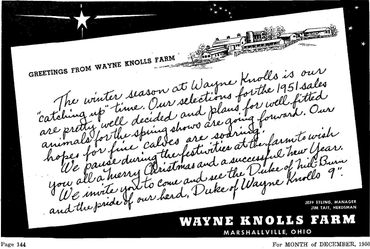 GREETINGS FROM WAYNE KNOLLS FARM
The winter season at Wayne Knolls is our
"catching up" time. Our selections for the 1951 sales
are pretty well decided and plans for well-fitted
animals for the spring shows are going forward. Our
hopes for fine calves are soaring.
We pause during the festivities at the farm to wish
you all a Merry Christmas and a successful New Year.
We invite you to come and see the Duke of
and the pride of our herd, Duke of Wayne Knolls 9th.
JEFF ETLING, MANAGER
JIM TAIT, HERDSMAN
WAYNE KNOLLS FARM
MARSHALLVILLE, OHIO
Page 144
For MONTH of DECEMBER,